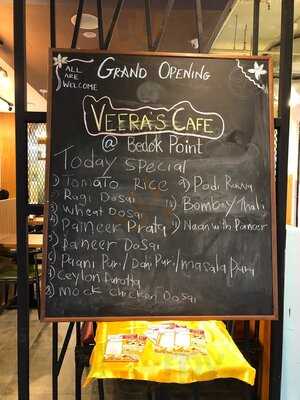 ALL
ARE
WELCOME
GRAND OPENING
VEERA'S CAFE
@ Bedok Point
Today Special
1) Tomato Rice
2) Ragi Dosai
3) Wheat Dosai
4) Paneer Prata
5) Paneer Dosai
6) Paani Puri / Dahi Puri / masala Puri
7) Ceylon Parotta
8) Mock chicken Dosai
9) Podi Rawa
10) Bombay Thali
11) Naan with Paneer